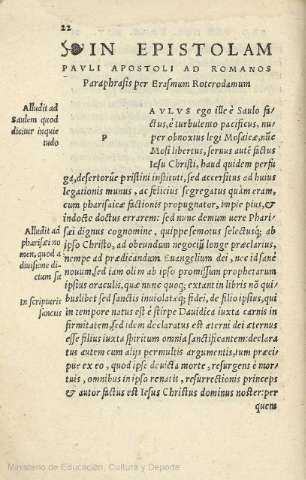 22
IN EPISTOLAM
PAVLI APOSTOLI AD ROMANOS
Paraphrasis per Erasmum Roterodamum
Alludit ad
Saulem quod
dicitur inquie
tudo
P
AVLVS ego ille è Saulo fa
ctus, è turbulento pacificus, nu
per obnoxius legi Mosaicæ, nũc
Mosi libertus, seruus autẽ factus
Iesu Christi, haud quidem perfu
ga, desertorúe pristini instituti, sed accersitus ad huius
legationis munus, ac felicius segregatus quàm eram,
cum pharisaicæ factionis propugnator, impie pius, &
indocte doctus errarem: sed nunc demum uere Phari
Alludit ad
pharisæi no
men, quod à
diuisione di
ctum sit
sæi dignus cognomine, quippe semotus selectusq; ab
ipso Christo, ad obeundum negocij longe præclarius,
nempe ad prædicandum Euangelium dei, nec id sanè
nouum, sed iam olim ab ipso promissum prophetarum
ipsius oraculis, quæ nunc quoq; extant in libris nõ qui
In scripturis
sanctis
buslibet sed sanctis inuiolatæq; fidei, de filio ipsius, qui
in tempore natus est è stirpe Dauidica iuxta carnis in
firmitatem, sed idem declaratus est æterni dei æternus
esse filius iuxta spiritum omnia sanctificantem: declara
tus autem cum alijs permultis argumentis, tum præci
pue ex eo, quod ipse deuicta morte, resurgens è mor
tuis, omnibus in ipso renatis, resurrectionis princeps
& autor factus est Iesus Christus dominus noster: per
quem
Ministerio de Educación, Cultura y Deporte